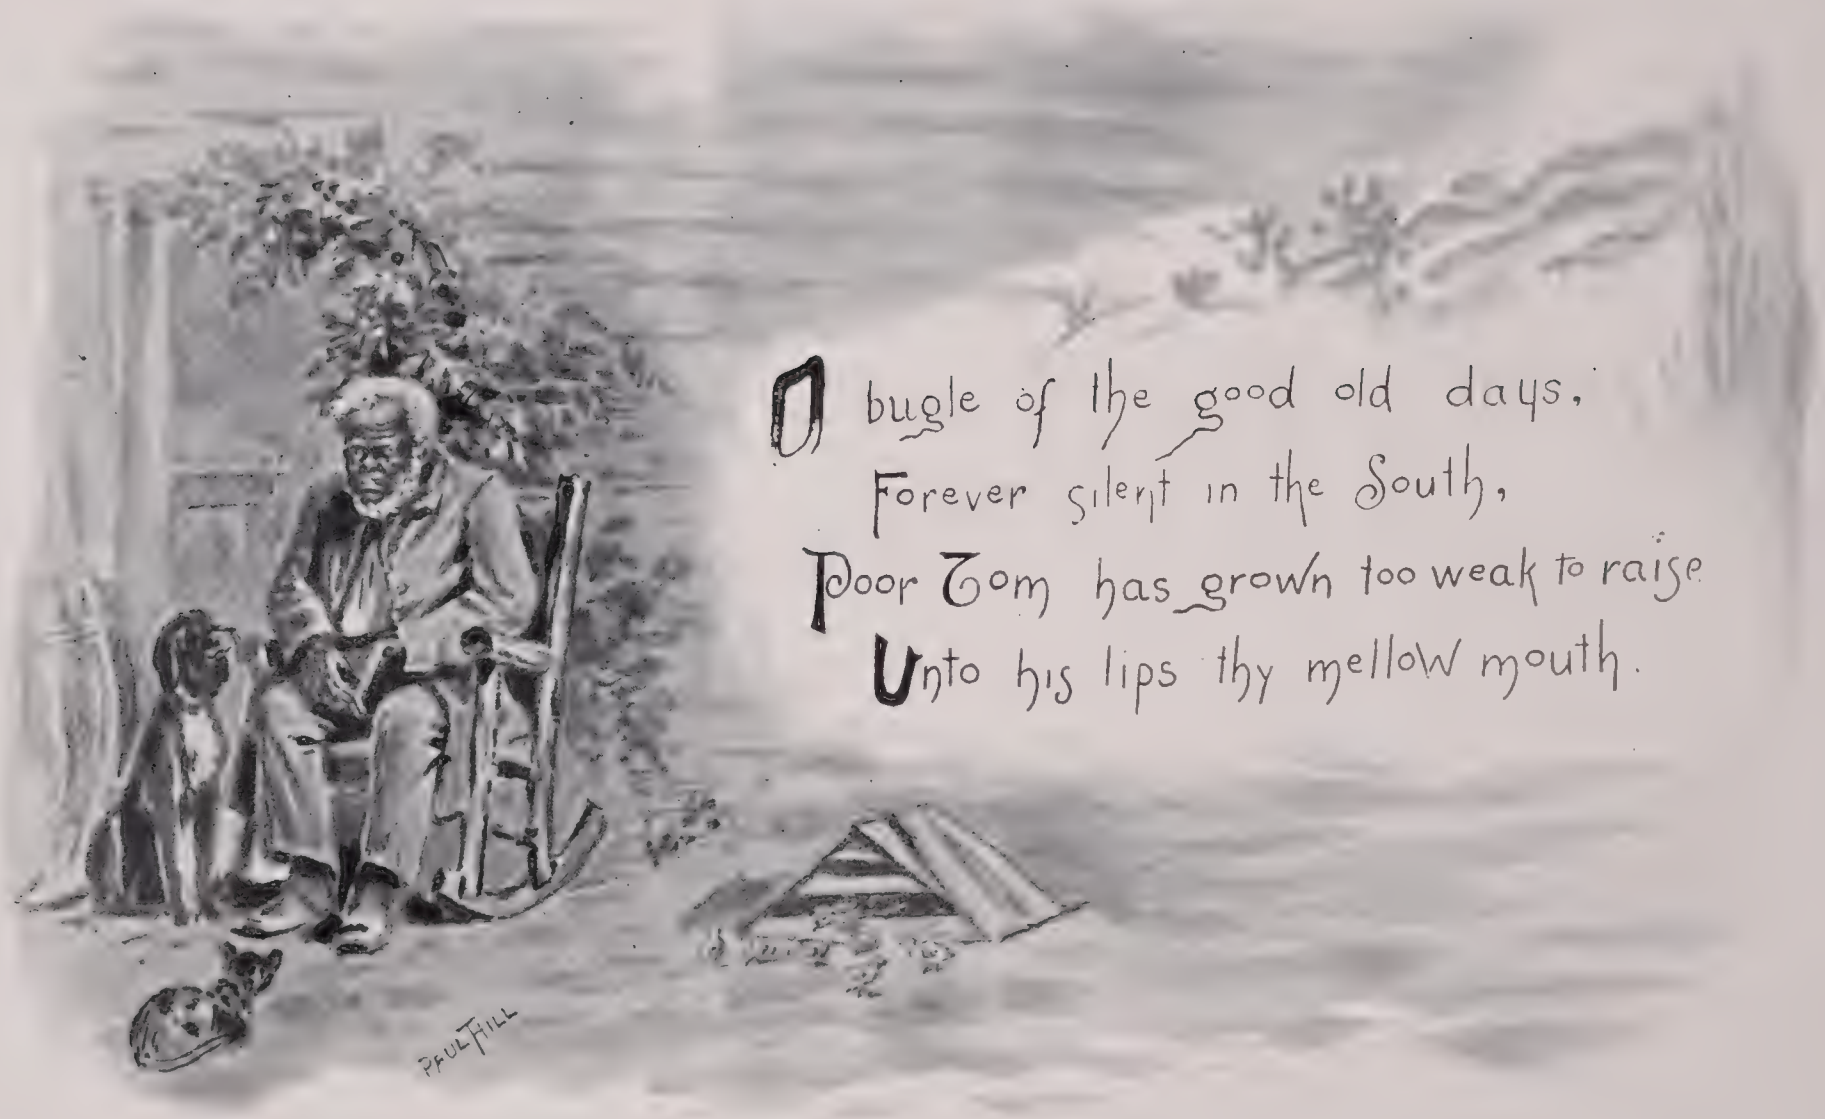 O bugle of the good old days,
Forever silent in the South,
Poor Tom has grown too weak to raise
Unto his lips thy mellow mouth.
PAUL HILL